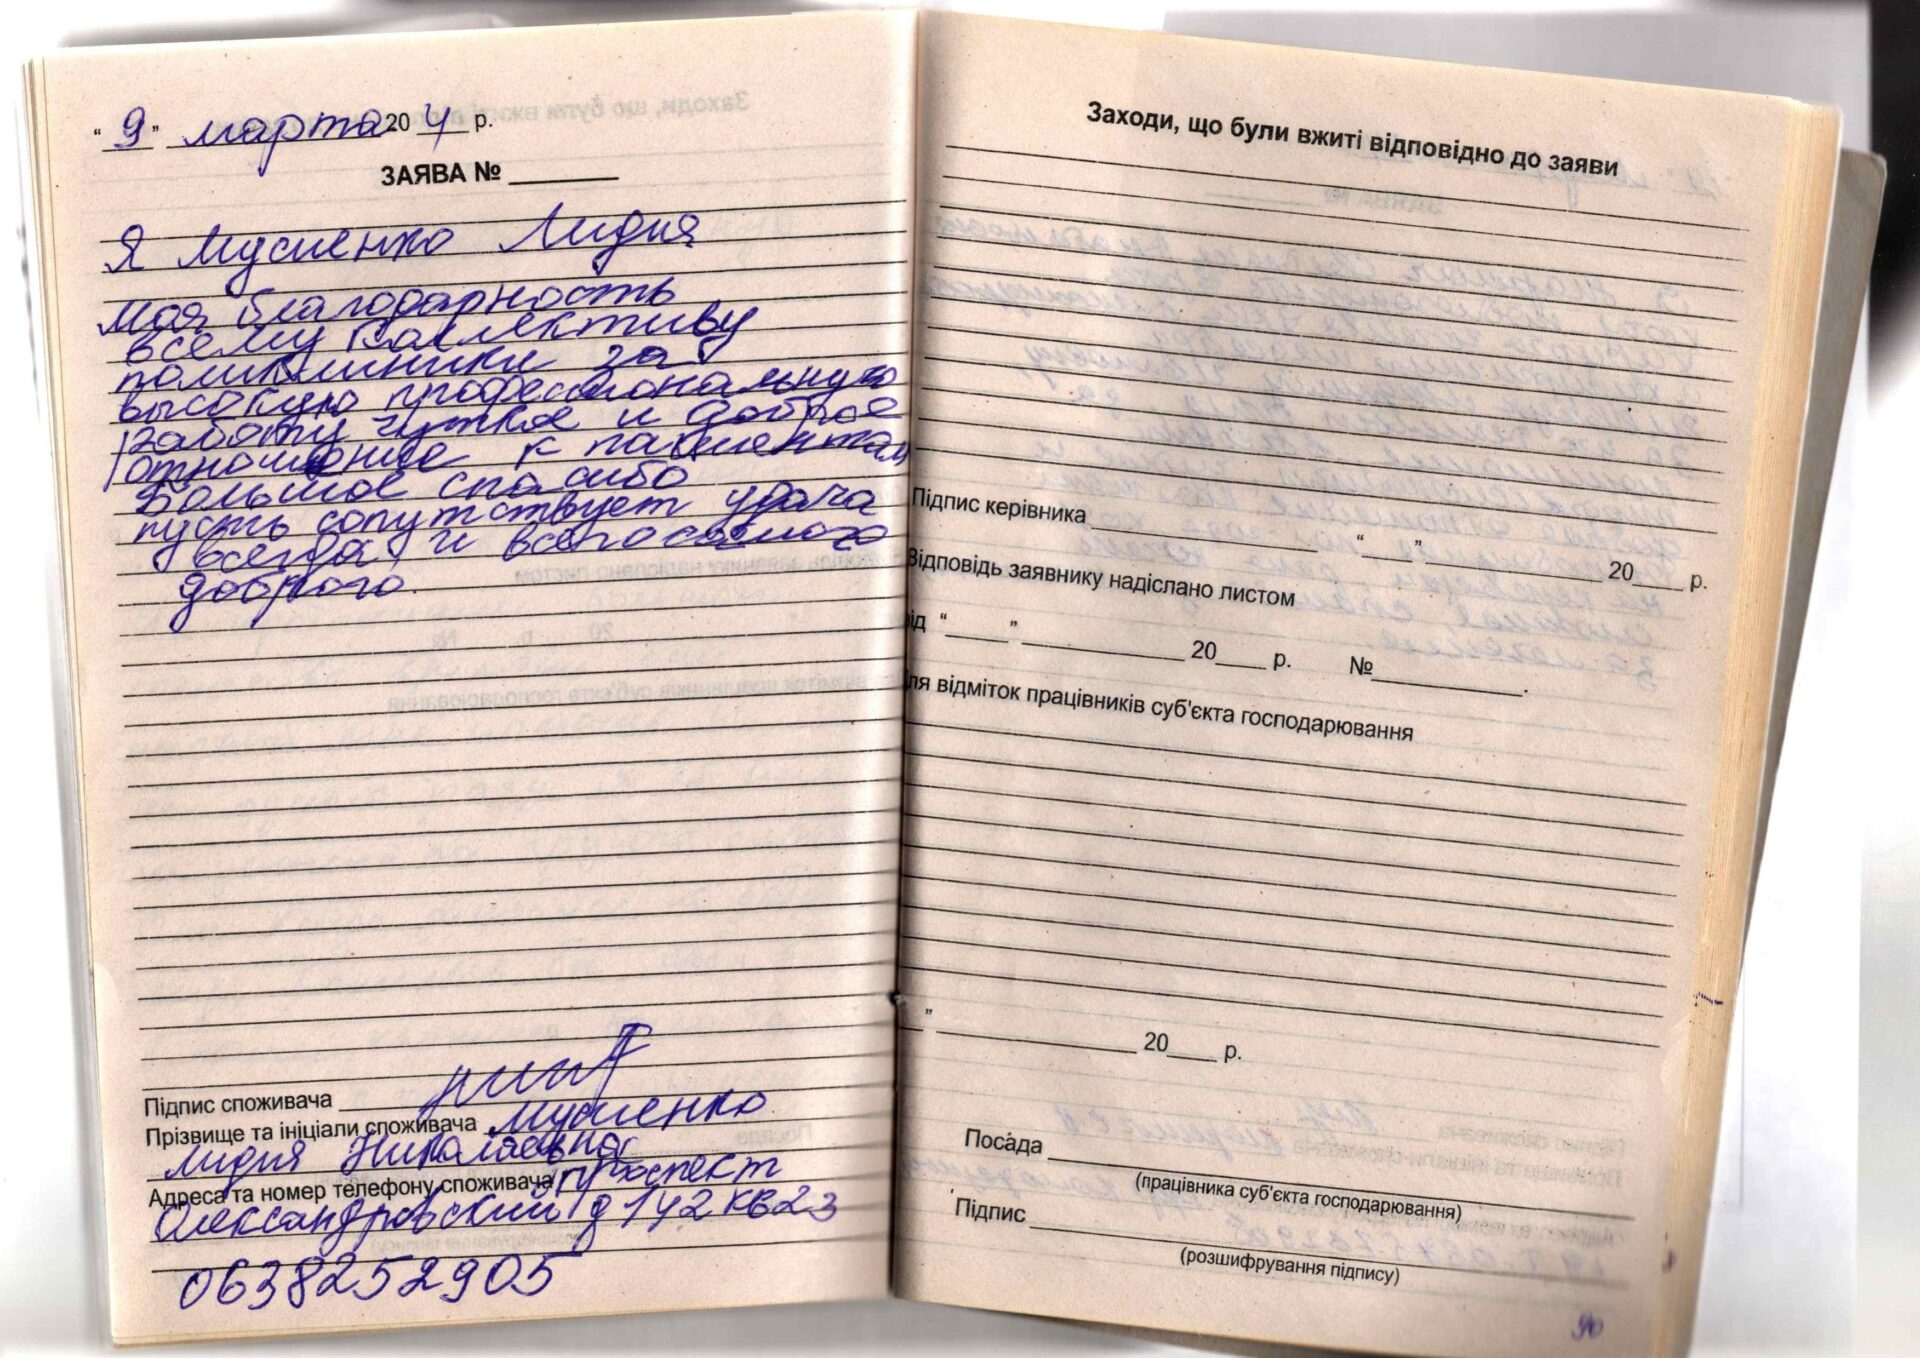 " 9 " марта 20 4 р.
ЗАЯВА № ______
Я Мусиенко Лидия
моя благодарность
всему коллективу
поликлиники за
высокую профессиональную
работу чуткое и доброе
отношение к пациентам
Большое спасибо
пусть сопутствует удача
всегда, и всего самого
доброго.
Підпис споживача
Прізвище та ініціали споживача Мусиенко
Лидия Николаевна
Адреса та номер телефону споживача проспект
Олександровский д 142 кв 23
0638252905
Заходи, що були вжиті відповідно до заяви
Підпис керівника ______ "___" ______ 20___ р.
Відповідь заявнику надіслано листом
від "___" ______ 20___ р. № ______.
ля відміток працівників суб'єкта господарювання
" ______ 20___ р.
Посада ______
(працівника суб'єкта господарювання)
Підпис ______
(розшифрування підпису)